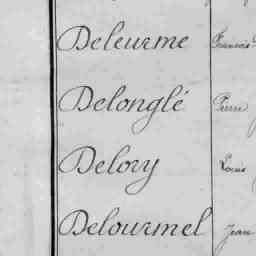 Deleurme François
Delonglé Pierre
Delory Louis
Delourmel Jean